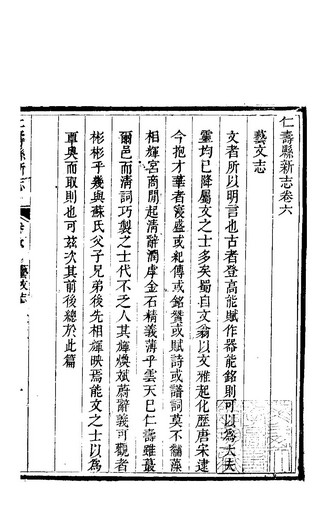 仁壽縣新志卷六
藝文志
文者所以明言也古者登高能賦作器能銘則可以為大夫
靈均已降屬文之士多矣蜀自文翁以文雅起化歷唐宋逮
今抱才華者寖盛或紀傳或銘贊或賦詩或譜詞莫不翻藻
相輝宮商閒起清辭潤虖金石精義薄乎雲天巳仁壽雖蕞
爾邑而清詞巧製之士代不乏人其輝煥斌蔚辭義可觀者
彬彬乎幾與蘇氏父子兄弟後先相輝映焉能文之士以為
覃奥而取則也可茲次其前後總於此篇
仁壽縣新志
卷六
藝文志